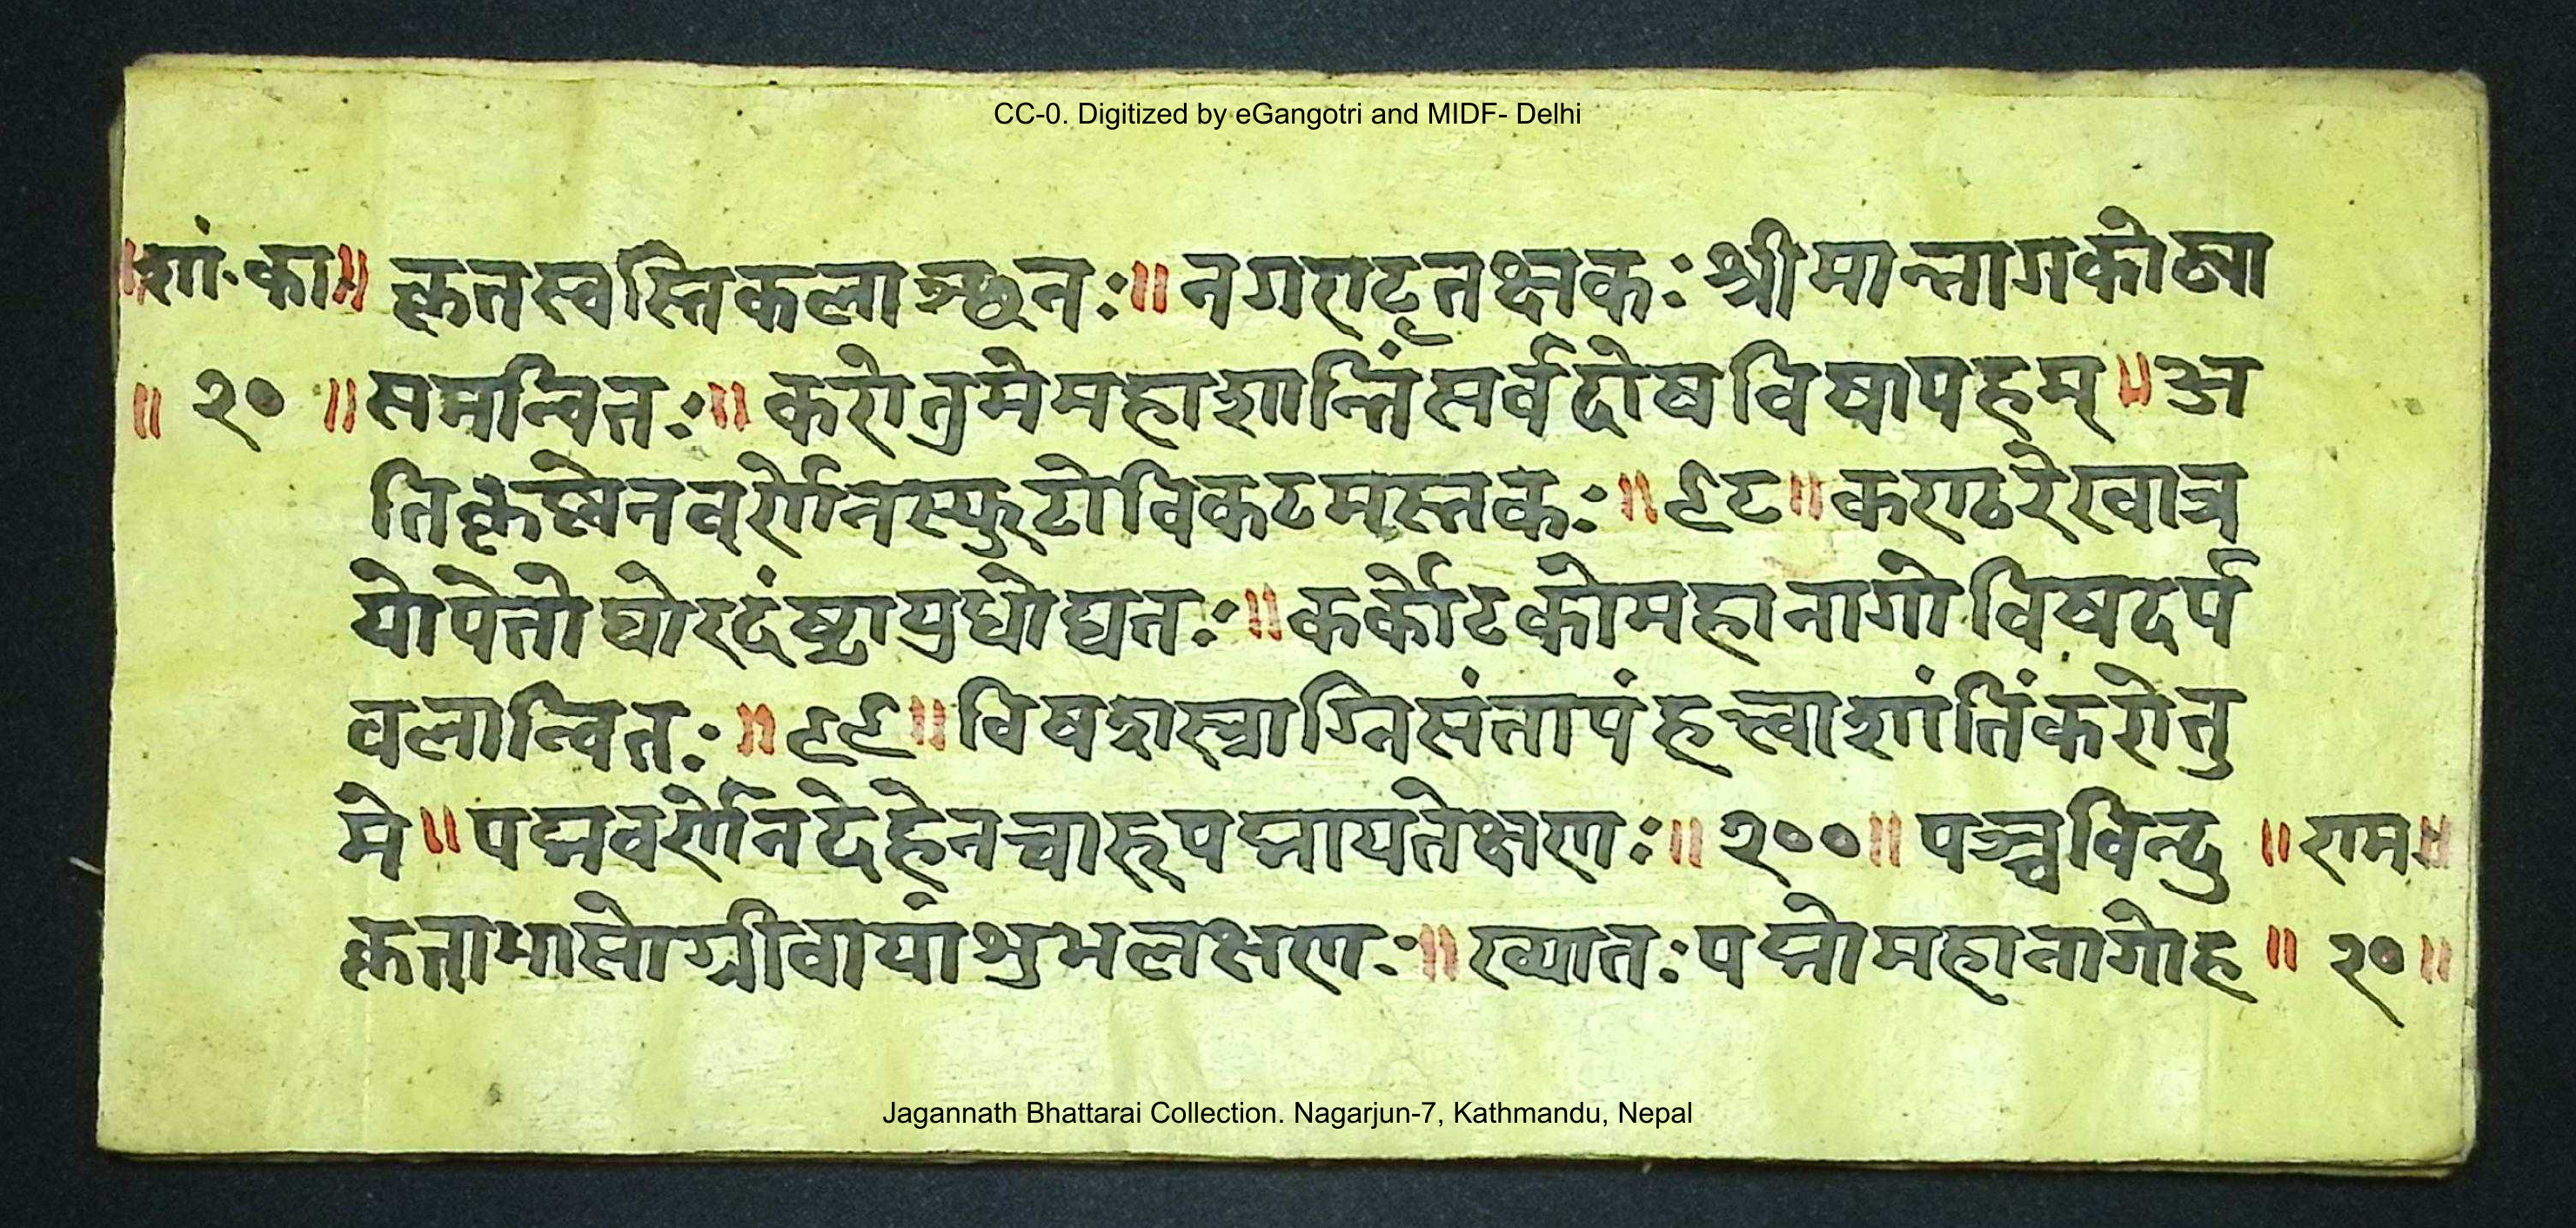 CC-0. Digitized by eGangotri and MIDF- Delhi
॥शां.का॥ कृतस्वस्तिकलाञ्छनः॥ नगराट्तक्षकः श्रीमान्नागकोट्या
॥ २० ॥ समन्वितः॥ करोतुमेमहाशान्तिंसर्वदोषविषापहम्॥ अ
तिकृष्णेनवर्णेनस्फुटोविकटमस्तकः॥ ९८॥ कण्ठरेखात्र
योपेतोघोरदंष्ट्रायुधोद्यतः॥ कर्कोटकोमहानागोविषदर्प
वलान्वितः॥ ९९॥ विषशस्त्राग्निसंतापंहत्त्वाशांतिंकरोतु
मे॥ पद्मवर्णेनदेहेनचारुपद्मायतेक्षणः॥ २००॥ पञ्चविन्दु ॥ राम॥
कृताभासोग्रीवायांशुभलक्षणः॥ ख्यातःपद्मोमहानागोह ॥ २०॥
Jagannath Bhattarai Collection. Nagarjun-7, Kathmandu, Nepal